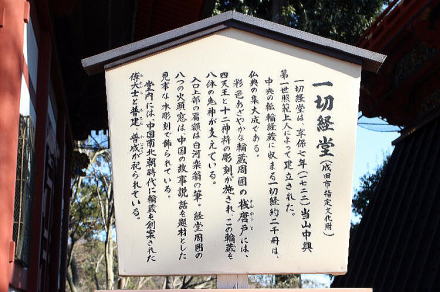 一切経堂(成田市指定文化財)
一切経堂は、享保七年(一七二二)当山中興
第一世照範上人によって建立された。
中央の転輪経蔵に収まる一切経約二千冊は、
仏典の集大成である。
彩色あざやかな輪蔵周囲の桟唐戸は
四天王と十二神将の彫刻が施され、この輪蔵を
八体の鬼神が支えている。
入口上部の扁額は白河楽翁の筆。経堂周囲の
八つの火頭窓は中国の故事説話を題材とした
見事な木彫刻で飾られている。
堂内には、中国南北朝時代に輪蔵を創案された
傅大士と普建、普成が祀られている。